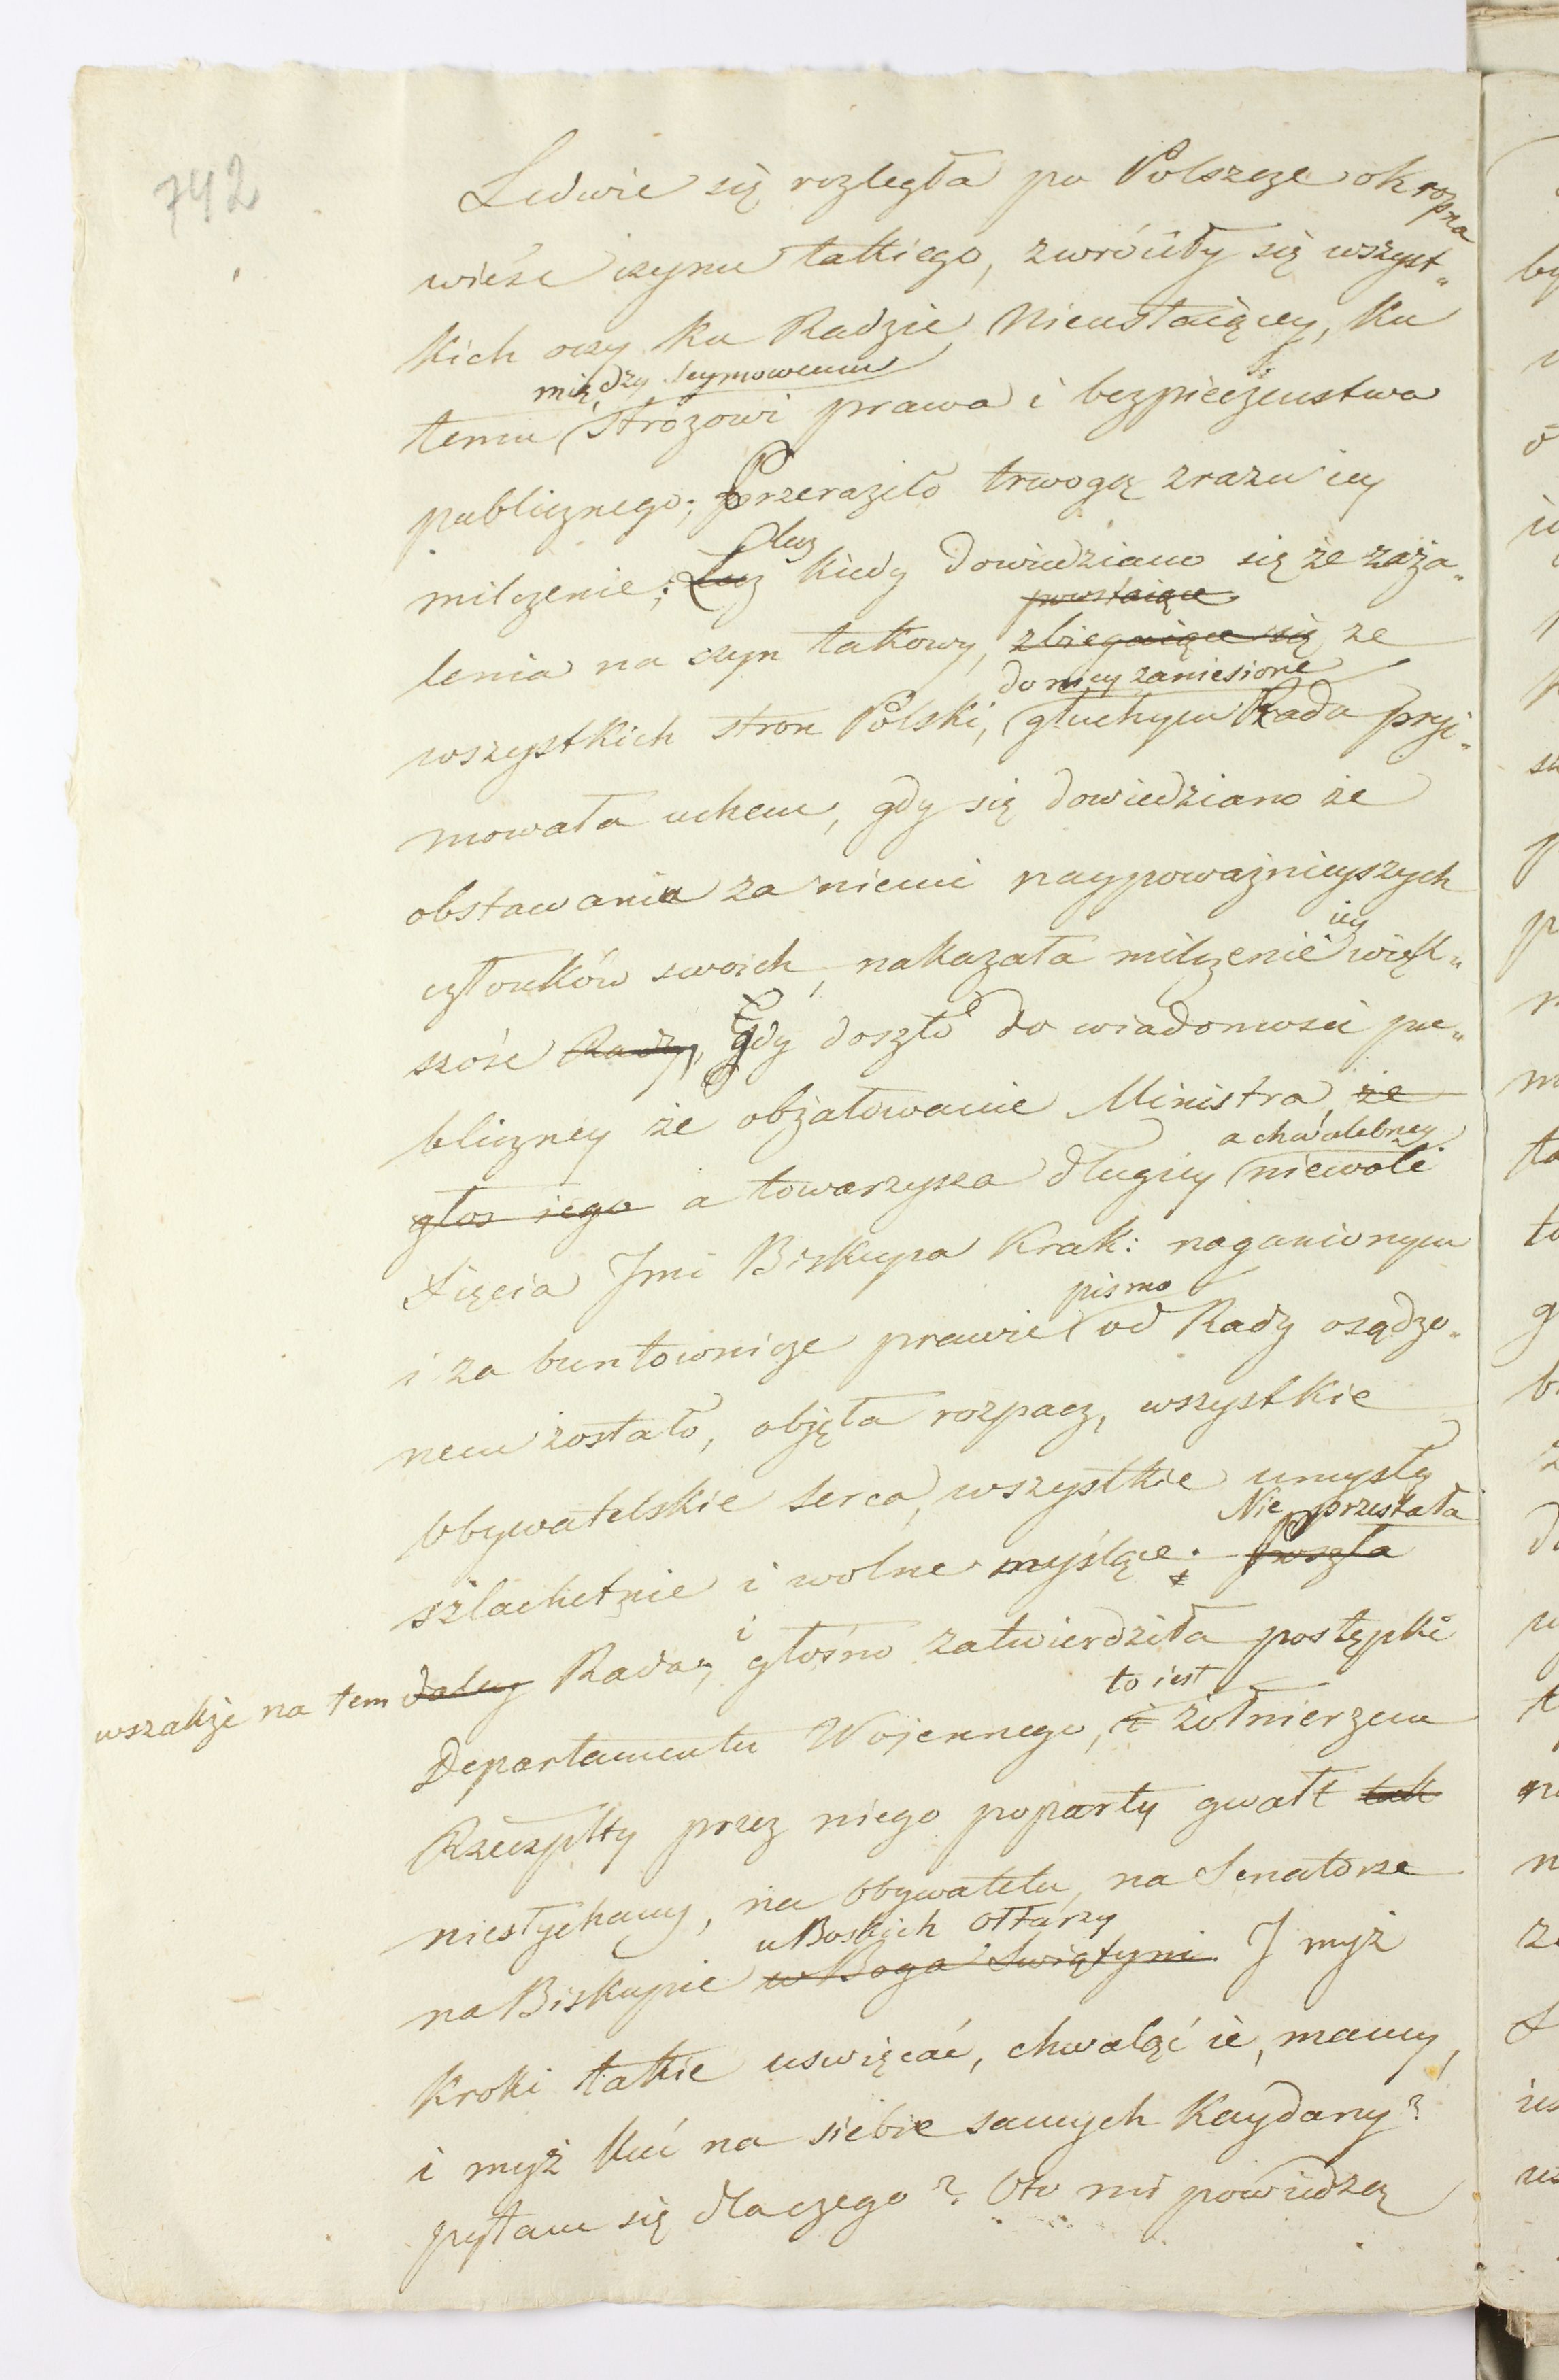 742
Ledwie się rozległa po Polszcze okropna
wieść czynu takiego, zwróciły się wszyst„
kich oczy ku Radzie Nieustaiącey, ku
między seymowemu
temu stróżowi prawa i bezpieczeństwa
publicznego; Przeraziło trwogą zrazu iey
lecz
milczenie; Lecz kiedy dowiedziano się że zaża„
powstaiące
lenia na czyn takowy, zbiegaiące się ze
do niey zaniesione
wszystkich stron Polski, głuchym Rada przyi„
mowała uchem, gdy się dowiedziano że
obstawaniu za niemi naypoważnieyszych
iey
członków swoich, nakazała milczenie więk„
szość Rady, Gdy doszło do wiadomości pu„
bliczney że obżałowanie Ministra, że
a chwalebney
głos iego a towarzysza długiey niewoli
Xięcia Jmi Biskupa Krak: naganionym
pismo
i za buntownicze prawie od Rady osądzo„
nem zostało, objęła rozpacz, wszystkie
obywatelskie serca, wszystkie umysły
Nie przestała
szlachetnie i wolne myślące. Poszła
wszakże na tem daley Rada, i głośno zatwierdziła postępki
to iest
Departamentu Wojennego, i żołnierzem
Rzeczpltty przez niego poparty gwałt tak
niesłychany, na Obywatelu, na Senatorze
u Boskich Ołtarzy
na Biskupie w Boga Swiątyni. I myż
kroki takie uswięcać, chwaląć ie, mamy,
i myż kuć na siebie samych Kaydany?
pytam się dlaczego? Oto mi powiedzą